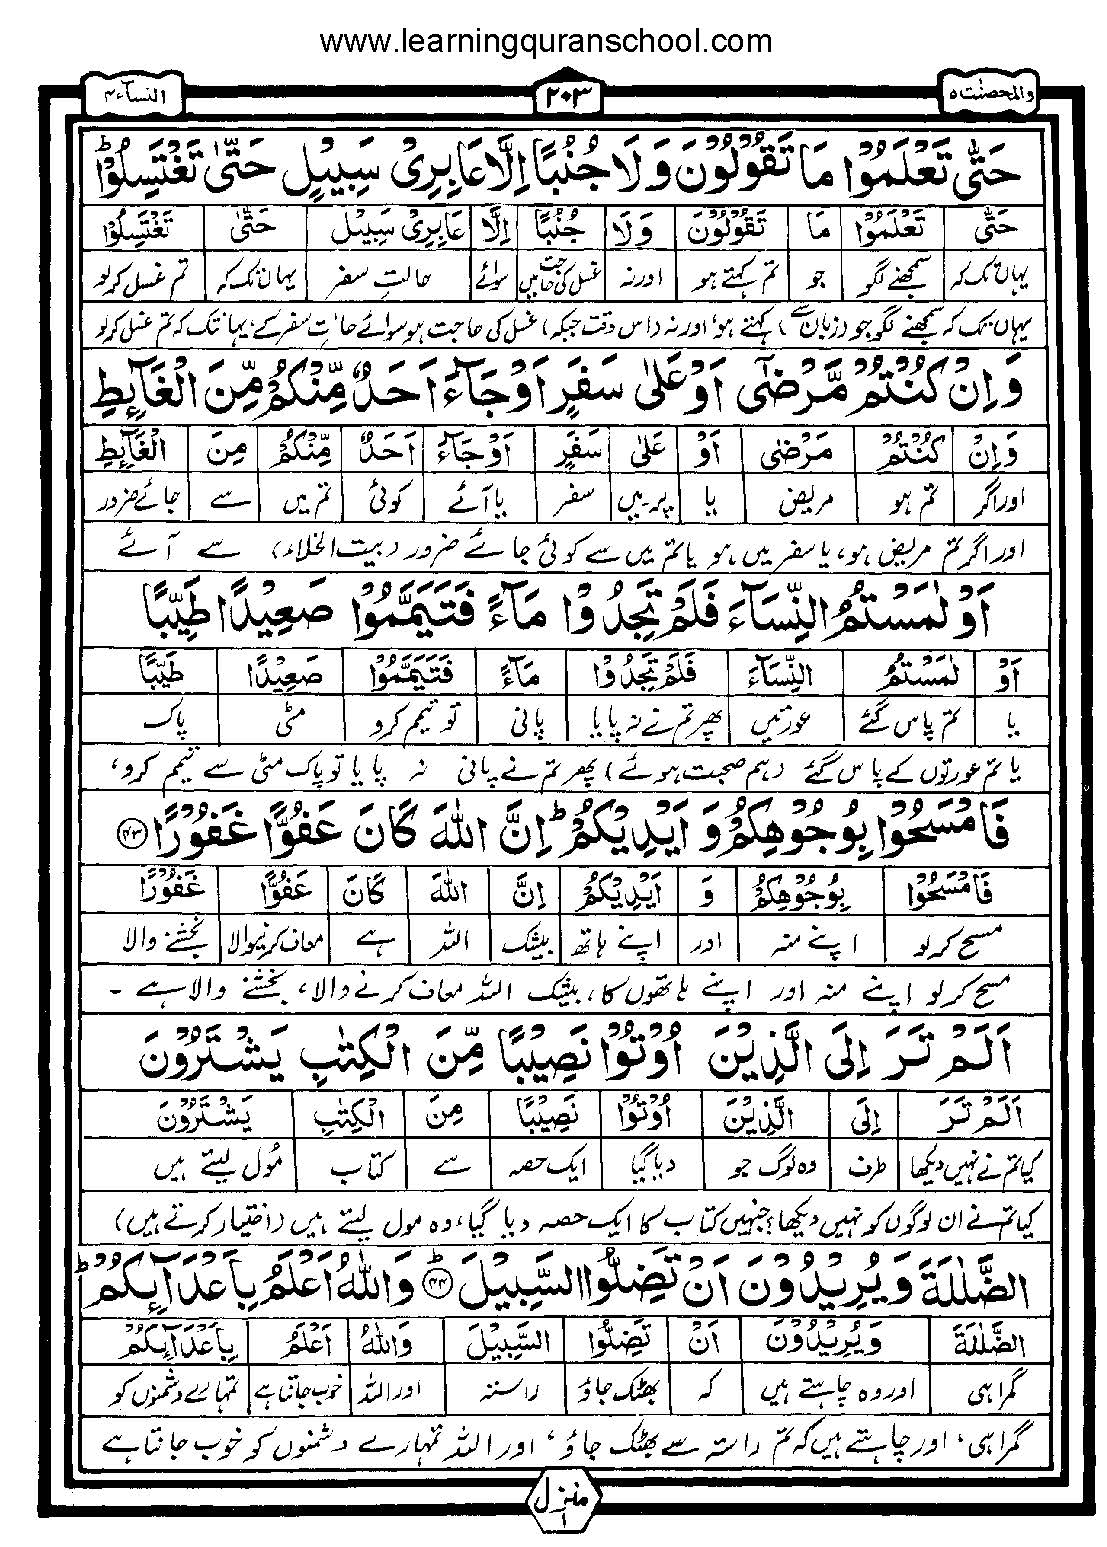 www.learningquranschool.com
والمحصنٰت ۵ ۲۰۳ النسآء ۴
حَتّٰی تَعْلَمُوْا مَا تَقُوْلُوْنَ وَلَا جُنُبًا اِلَّا عَابِرِیْ سَبِیْلٍ حَتّٰی تَغْتَسِلُوْا ؕ
حَتّٰی تَعْلَمُوْا مَا تَقُوْلُوْنَ وَلَا جُنُبًا اِلَّا عَابِرِیْ سَبِیْلٍ حَتّٰی تَغْتَسِلُوْا
یہاں تک کہ سمجھنے لگو جو تم کہتے ہو اور نہ غسل کی حالت میں سوائے حالتِ سفر یہاں تک کہ تم غسل کرلو
یہاں تک کہ سمجھنے لگو جو (زبان سے) کہتے ہو، اور نہ (اس وقت جبکہ) غسل کی حاجت ہو سوائے حالتِ سفر کے، یہانتک کہ تم غسل کرلو
وَاِنْ كُنْتُمْ مَّرْضٰۤی اَوْ عَلٰی سَفَرٍ اَوْ جَآءَ اَحَدٌ مِّنْكُمْ مِّنَ الْغَآىِٕطِ
وَاِنْ كُنْتُمْ مَرْضٰی اَوْ عَلٰی سَفَرٍ اَوْ جَآءَ اَحَدٌ مِّنْكُمْ مِنَ الْغَآىِٕطِ
اور اگر تم ہو مریض یا پر۔میں سفر یا آئے کوئی تم میں سے جائے ضرور
اور اگر تم مریض ہو، یا سفر میں ہو یا تم میں سے کوئی جائے ضرور (بیت الخلاء) سے آئے
اَوْ لٰمَسْتُمُ النِّسَآءَ فَلَمْ تَجِدُوْا مَآءً فَتَیَمَّمُوْا صَعِیْدًا طَیِّبًا
اَوْ لٰمَسْتُمُ النِّسَآءَ فَلَمْ تَجِدُوْا مَآءً فَتَیَمَّمُوْا صَعِیْدًا طَیِّبًا
یا تم پاس گئے عورتیں پھر تم نے نہ پایا پانی تو تیمم کرو مٹی پاک
یا تم عورتوں کے پاس گئے (ہم صحبت ہوئے) پھر تم نے پانی نہ پایا تو پاک مٹی سے تیمم کرو،
فَامْسَحُوْا بِوُجُوْهِكُمْ وَ اَیْدِیْكُمْ ؕ اِنَّ اللّٰهَ كَانَ عَفُوًّا غَفُوْرًا ۴۳
فَامْسَحُوْا بِوُجُوْهِكُمْ وَ اَیْدِیْكُمْ اِنَّ اللّٰهَ كَانَ عَفُوًّا غَفُوْرًا
مسح کرلو اپنے منہ اور اپنے ہاتھ بیشک اللہ ہے معاف کرنیوالا بخشنے والا
مسح کرلو اپنے منہ اور اپنے ہاتھوں کا، بیشک اللہ معاف کرنے والا، بخشنے والا ہے ۔
اَلَمْ تَرَ اِلَی الَّذِیْنَ اُوْتُوْا نَصِیْبًا مِّنَ الْكِتٰبِ یَشْتَرُوْنَ
اَلَمْ تَرَ اِلَی الَّذِیْنَ اُوْتُوْا نَصِیْبًا مِنَ الْكِتٰبِ یَشْتَرُوْنَ
کیا تم نے نہیں دیکھا طرف وہ لوگ جو دیا گیا ایک حصہ سے کتاب مول لیتے ہیں
کیا تم نے ان لوگوں کو نہیں دیکھا؟ جنہیں کتاب کا ایک حصہ دیا گیا، وہ مول لیتے ہیں (اختیار کرتے ہیں)
الضَّلٰلَةَ وَیُرِیْدُوْنَ اَنْ تَضِلُّوا السَّبِیْلَ ۴۴ وَاللّٰهُ اَعْلَمُ بِاَعْدَآىِٕكُمْ ؕ
الضَّلٰلَةَ وَیُرِیْدُوْنَ اَنْ تَضِلُّوا السَّبِیْلَ وَاللّٰهُ اَعْلَمُ بِاَعْدَآىِٕكُمْ
گمراہی اور وہ چاہتے ہیں کہ بھٹک جاؤ راستہ اور اللہ خوب جانتا ہے تمہارے دشمنوں کو
گمراہی، اور چاہتے ہیں کہ تم راستہ سے بھٹک جاؤ، اور اللہ تمہارے دشمنوں کو خوب جانتا ہے
منزل ۱